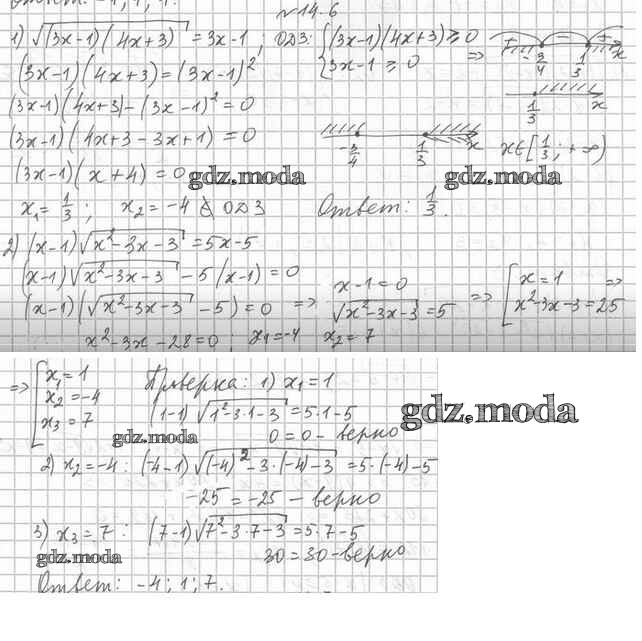 Ответ: -4; 1; 1.
№14-6
1) √((3x-1)(4x+3)) = 3x-1; ОДЗ: {(3x-1)(4x+3) ≥ 0
{3x-1 ≥ 0 =>
+ - + -3/4 1/3 x
(3x-1)(4x+3) = (3x-1)²
1/3 x
(3x-1)(4x+3) - (3x-1)² = 0
(3x-1)(4x+3-3x+1) = 0
-3/4 1/3 x x∈[1/3; +∞)
(3x-1)(x+4) = 0
gdz.moda gdz.moda
x₁ = 1/3; x₂ = -4 ∉ ОДЗ Ответ: 1/3.
2) (x-1)√(x²-3x-3) = 5x-5
(x-1)√(x²-3x-3) - 5(x-1) = 0
(x-1)(√(x²-3x-3) - 5) = 0 => x-1=0
√(x²-3x-3) = 5 => [x=1
x²-3x-3=25 =>
x²-3x-28=0; x₁=-4 x₂=7
=> [x₁=1
x₂=-4
x₃=7
Проверка: 1) x₁=1
(1-1)√(1²-3·1-3) = 5·1-5
0=0 - верно
gdz.moda gdz.moda
2) x₂=-4: (-4-1)√((-4)²-3·(-4)-3) = 5·(-4)-5
-25=-25 - верно
3) x₃=7: (7-1)√(7²-3·7-3) = 5·7-5
30=30 - верно
gdz.moda
Ответ: -4; 1; 7.